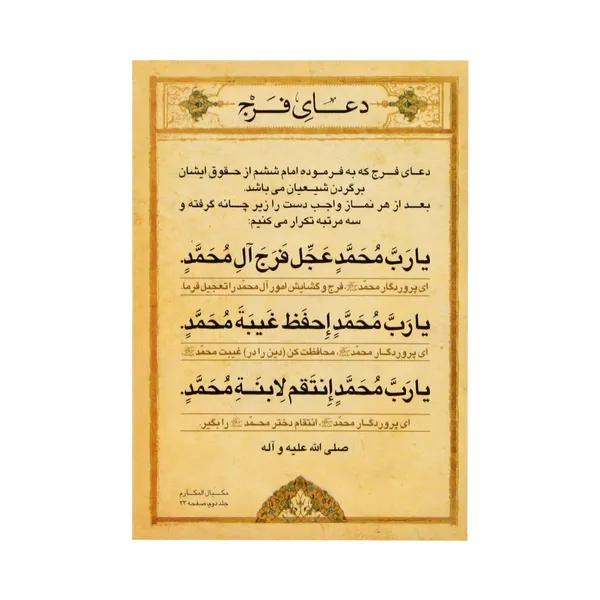 دعای فرج
دعای فرج که به فرموده امام ششم از حقوق ایشان
برگردن شیعیان می باشد.
بعد از هر نماز واجب دست را زیر چانه گرفته و
سه مرتبه تکرار می کنیم:
یا رَبَّ مُحَمَّدٍ عَجِّل فَرَجَ آلِ مُحَمَّدٍ.
ای پروردگار محمدﷺ، فرج و گشایش امور آل محمد را تعجیل فرما.
یا رَبَّ مُحَمَّدٍ إِحفَظ غَیبَةَ مُحَمَّدٍ.
ای پروردگار محمدﷺ، محافظت کن (دین را در) غیبت محمدﷺ
یا رَبَّ مُحَمَّدٍ إِنتَقم لِابنَةِ مُحَمَّدٍ.
ای پروردگار محمدﷺ، انتقام دختر محمد ﷺ را بگیر.
صلی الله علیه و آله
مکیال المکارم
جلد دوم، صفحه ۲۳